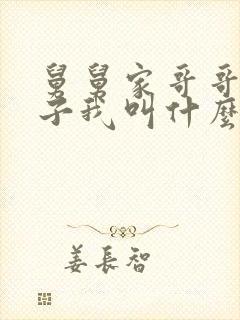 舅舅家哥哥
子我叫什麼
姜長智